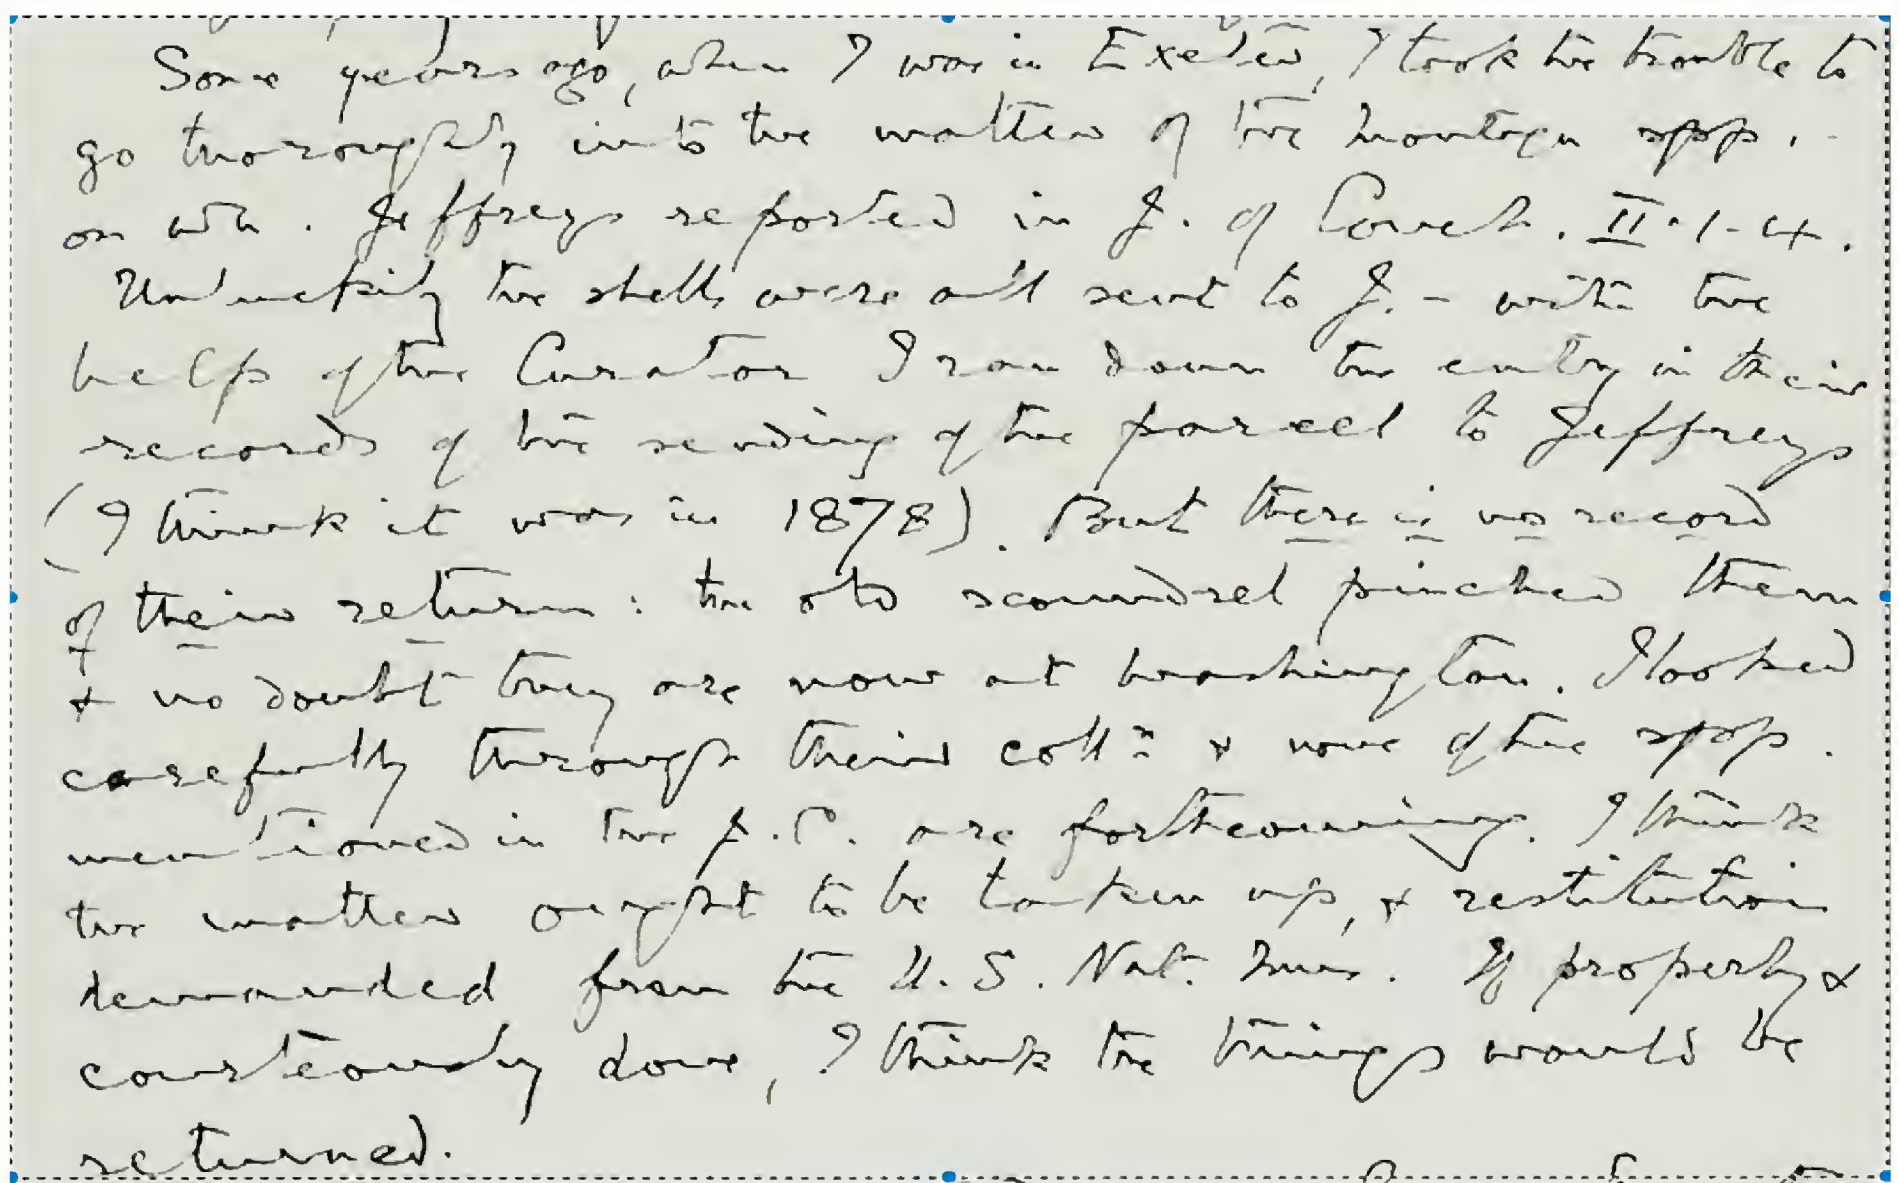 Some years ago, when I was in Exeter, I took the trouble to
go thoroughly into the matter of the Montagu spp. -
on wh. Jeffreys reported in J. of Conch. II. 1-4.
Unluckily the shells were all sent to J. - with the
help of the Curator I ran down the entry in their
records of the sending of the parcel to Jeffreys
(I think it was in 1878). But there is no record
of their return: the old scoundrel pinched them
& no doubt they are now at Washington. I looked
carefully through their colln & none of the spp.
mentioned in the J.C. are forthcoming. I think
the matter ought to be taken up, & restitution
demanded from the U.S. Nat. Mus. If properly &
courteously done, I think the things would be
returned.